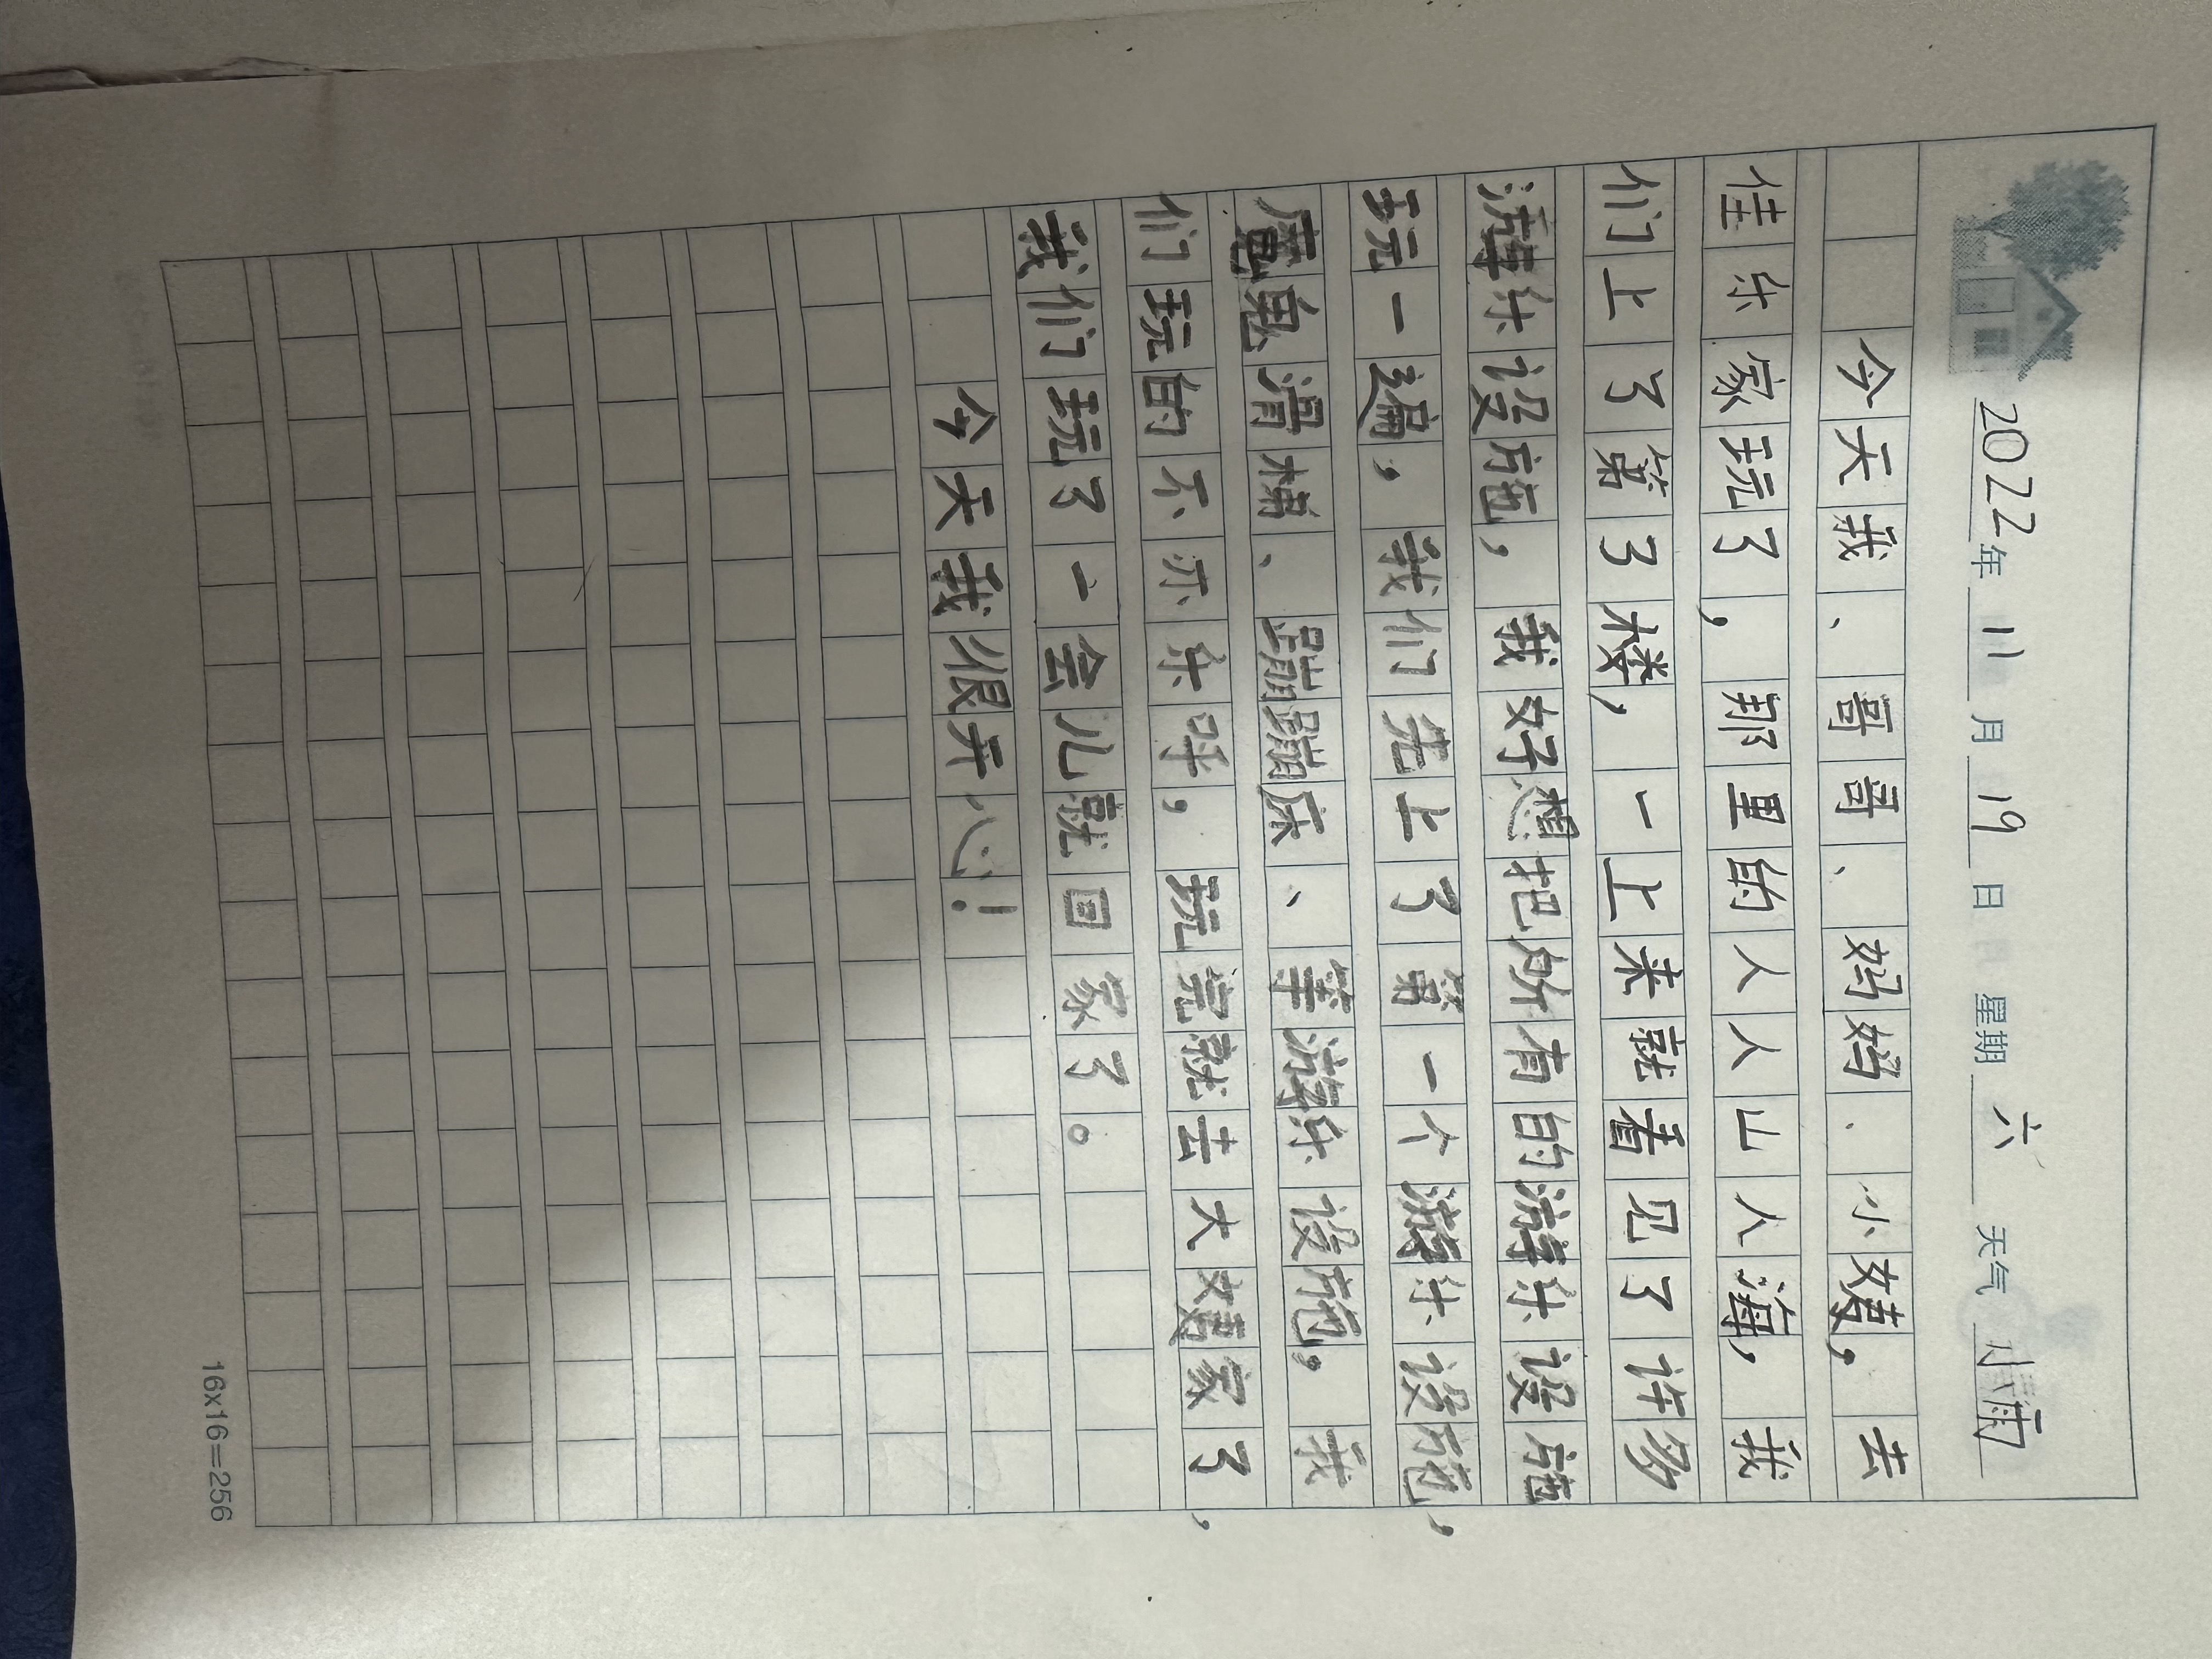 2022年11月19日 星期六 天气 晴
今天我、哥哥、妈妈、小姨,去
佳乐家玩了,那里的人人山人海,我
们上了第3楼,一上来就看见了许多
游乐设施,我好想把所有的游乐设施
玩一遍,我们先上了第一个游乐设施,
魔鬼滑梯、蹦蹦床、等游乐设施,我
们玩的不亦乐呼,玩完就去大姨家了,
我们玩了一会儿就回家了。
今天我很开心!
16x16=256